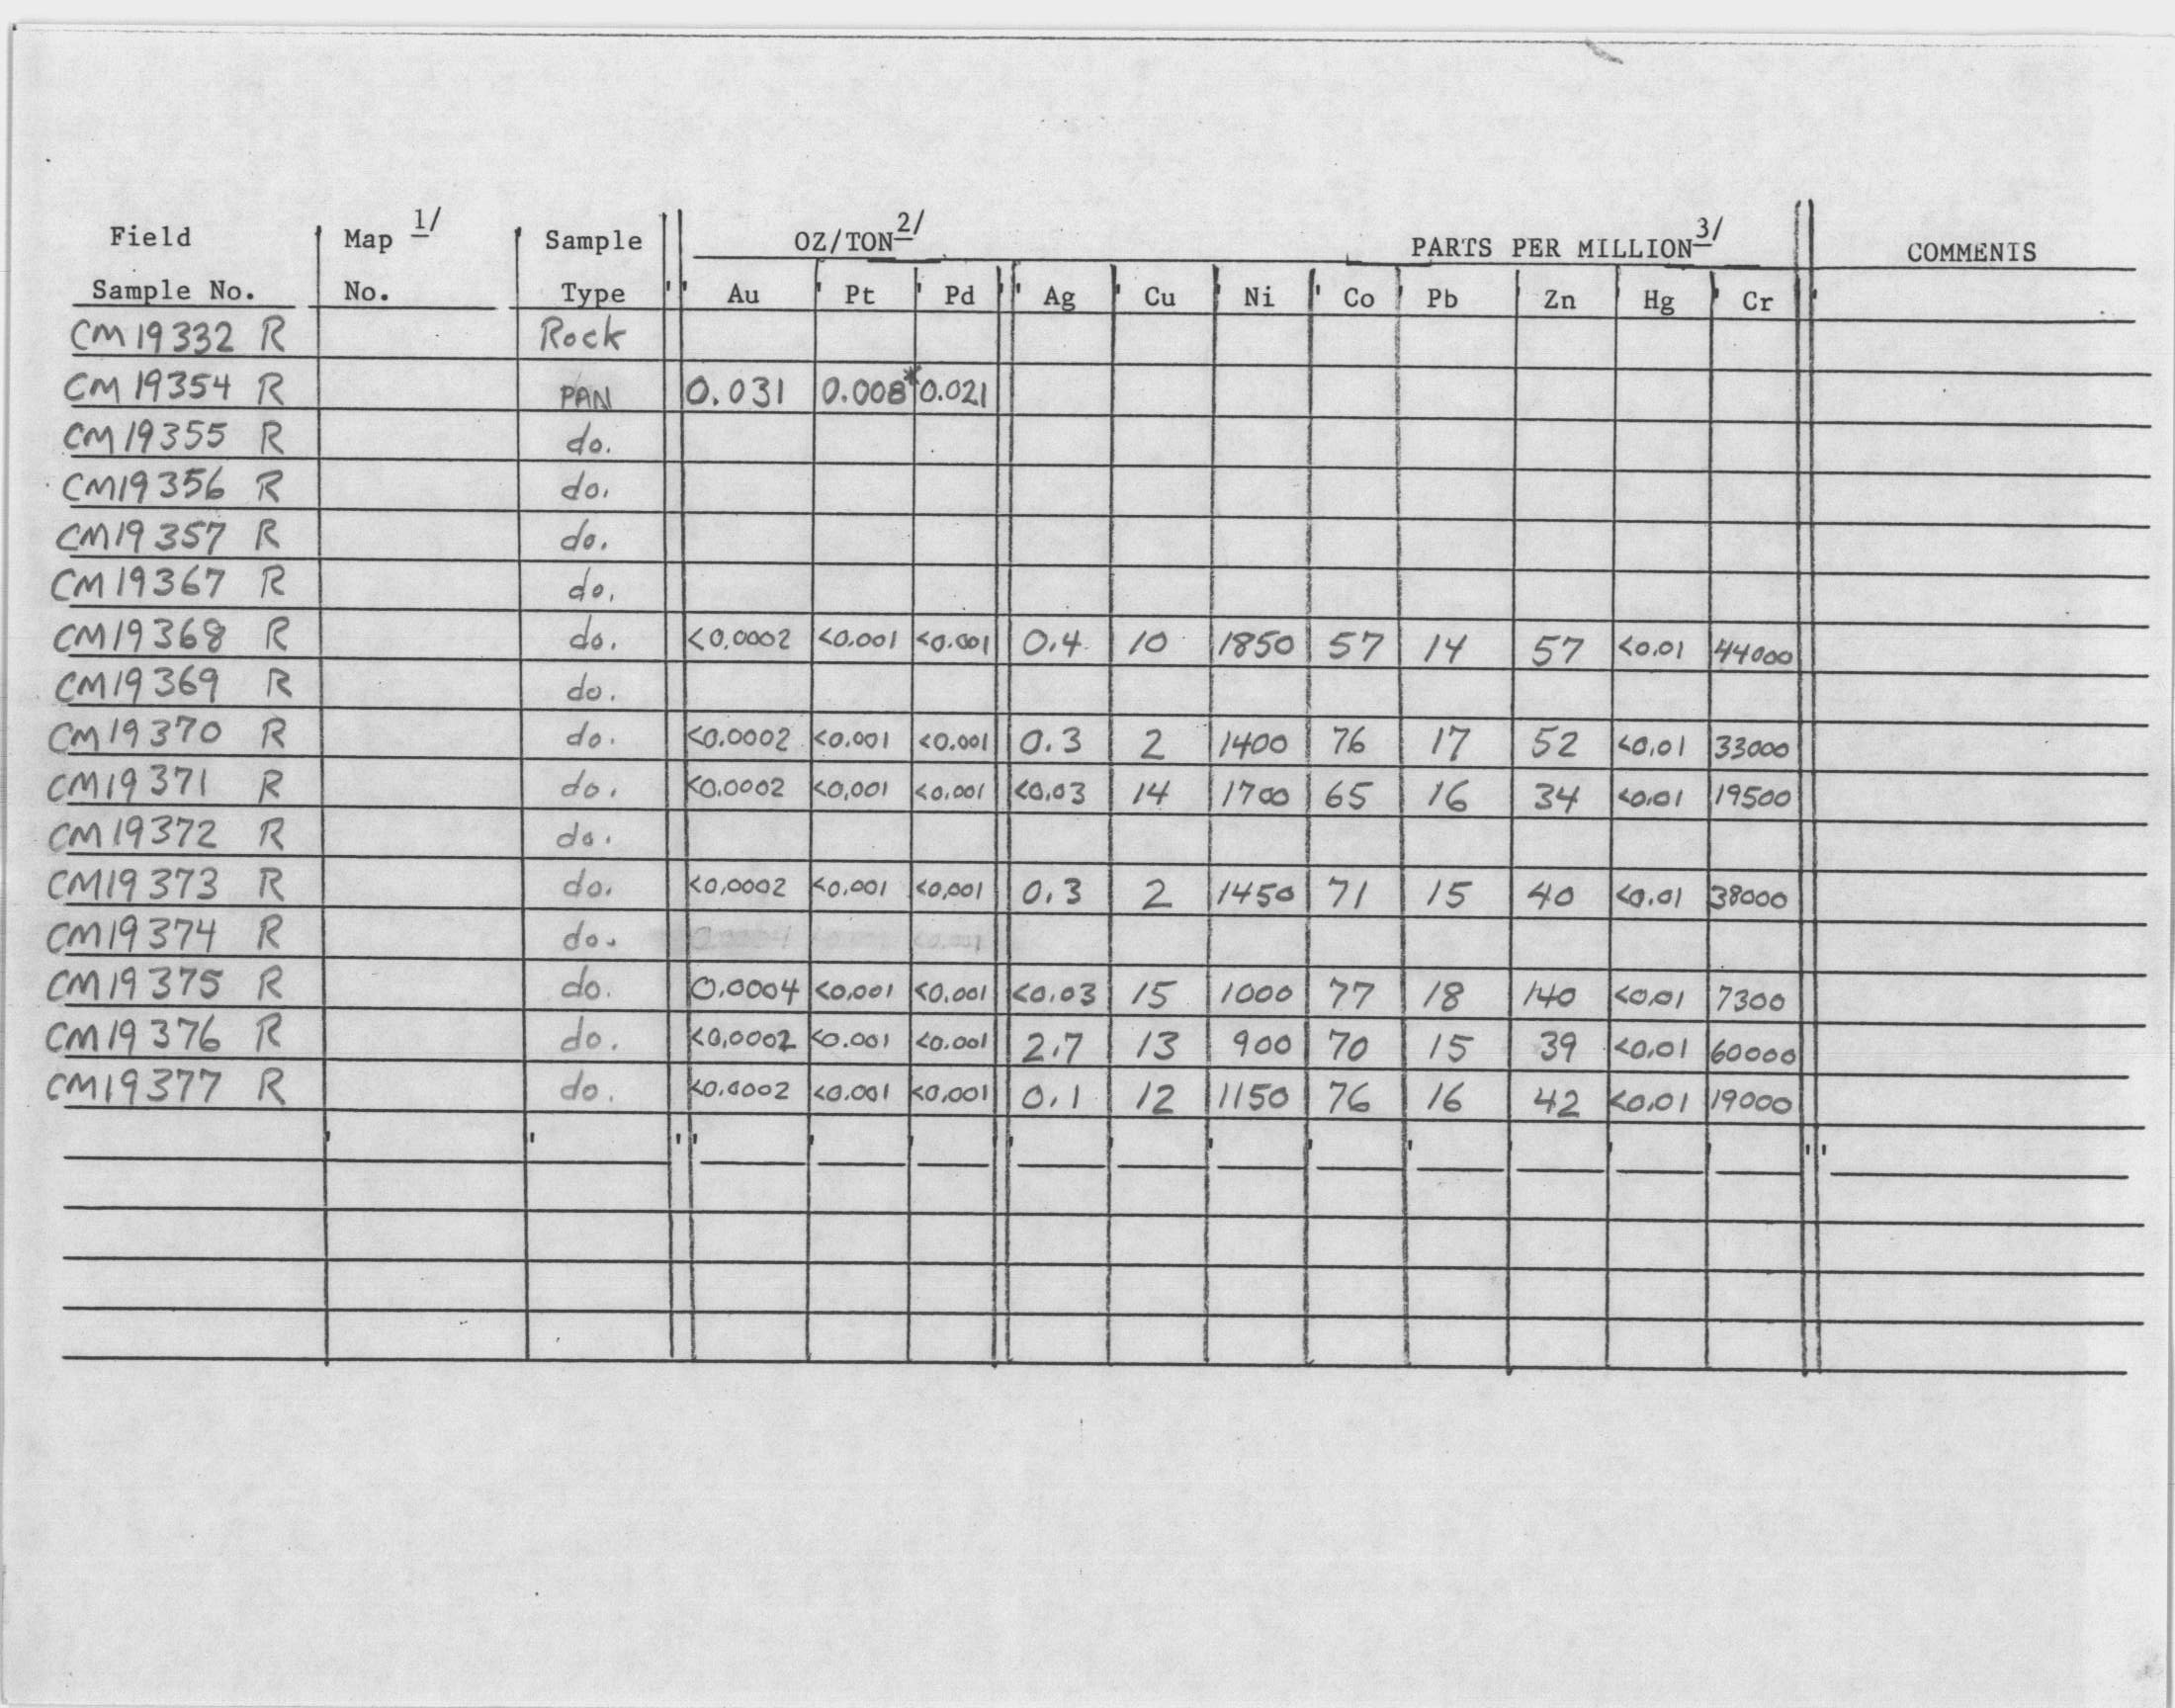 Field Map 1/ Sample OZ/TON 2/ PARTS PER MILLION 3/ COMMENTS
Sample No. No. Type Au Pt Pd Ag Cu Ni Co Pb Zn Hg Cr
CM19332 R Rock
CM19354 R PAN 0.031 0.008* 0.021
CM19355 R do.
CM19356 R do.
CM19357 R do.
CM19367 R do.
CM19368 R do. <0.0002 <0.001 <0.001 0.4 10 1850 57 14 57 <0.01 44000
CM19369 R do.
CM19370 R do. <0.0002 <0.001 <0.001 0.3 2 1400 76 17 52 <0.01 33000
CM19371 R do. <0.0002 <0.001 <0.001 <0.03 14 1700 65 16 34 <0.01 19500
CM19372 R do.
CM19373 R do. <0.0002 <0.001 <0.001 0.3 2 1450 71 15 40 <0.01 38000
CM19374 R do.
CM19375 R do. 0.0004 <0.001 <0.001 <0.03 15 1000 77 18 140 <0.01 7300
CM19376 R do. <0.0002 <0.001 <0.001 2.7 13 900 70 15 39 <0.01 60000
CM19377 R do. <0.0002 <0.001 <0.001 0.1 12 1150 76 16 42 <0.01 19000